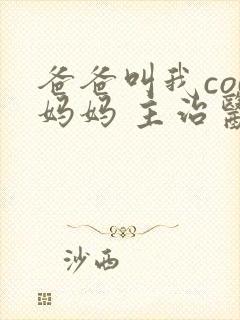 爸爸叫我co
妈妈 主治
沙西